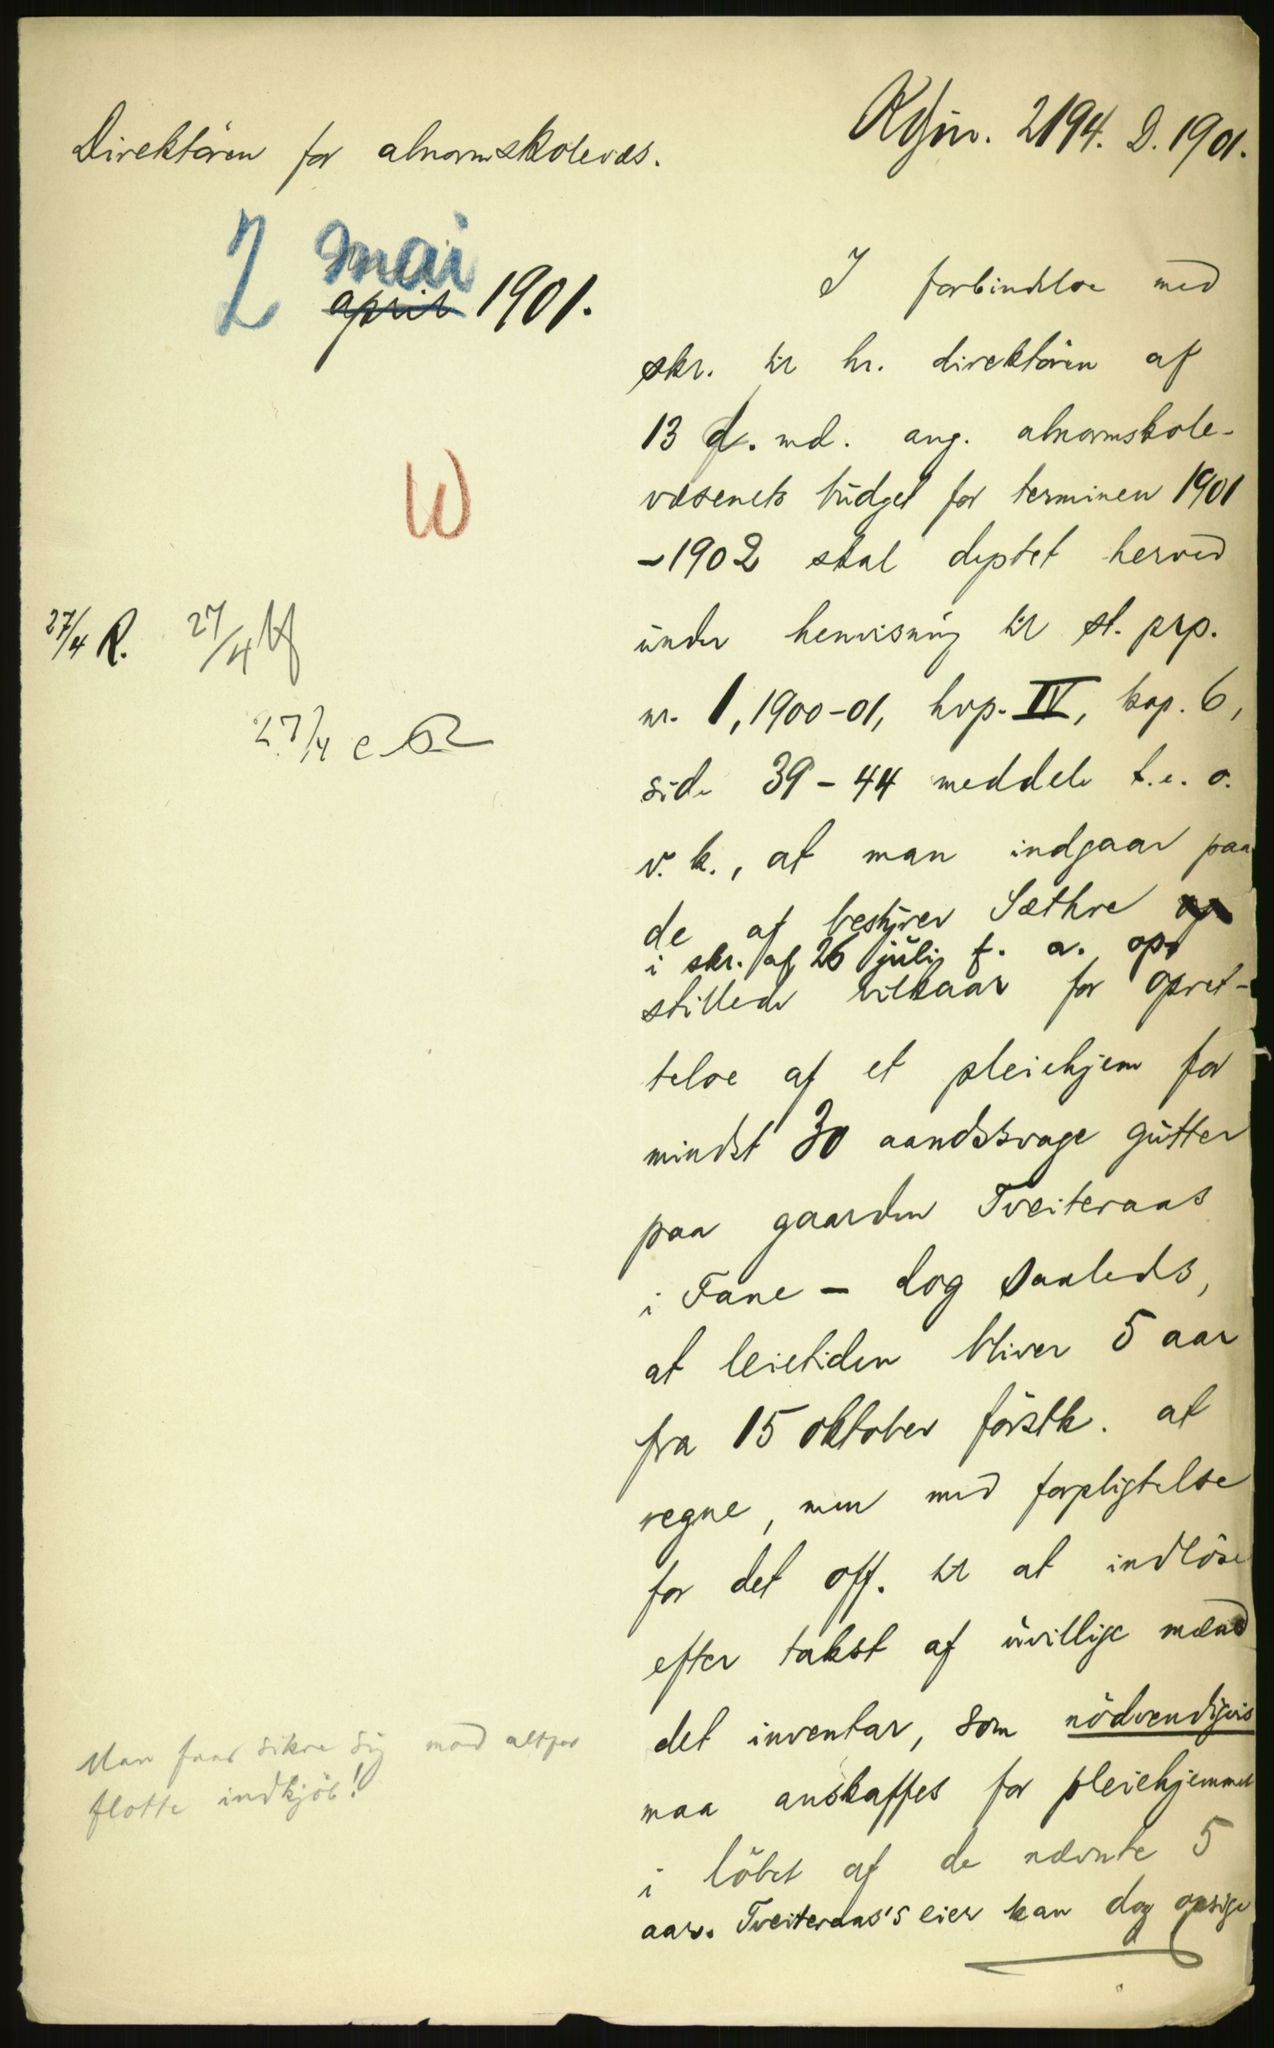 Kdjnr. 2194. D. 1901.
Direktören for abnormskolevæs.
2 mai
april 1901.
W
27/4 R. 27/4
27/4
I forbindelse med
skr. til hr. direktören af
13 d. md. ang. abnormskole-
væsenets budget for terminen 1901
-1902 skal deptet herved
under henvisning til st. prp.
nr. 1, 1900-01, hvp. IV, kap. 6,
side 39-44 meddele t.e. o.
v. k., at man indgaar paa
de af bestyrer Sæthre
i skr. af 26 juli f. a. op-
stillede vilkaar for opret-
telse af et pleiehjem for
mindst 30 aandssvage gutter
paa gaarden Tveiteraas
i Fane - dog saaleds,
at leietiden bliver 5 aar
fra 15 oktober förstk. at
regne, men med forpligtelse
for det off. til at indlöse
efter takst af uvillige mænd
det inventar, som nödvendigvis
maa anskaffes for pleiehjemmet
i löbet af de nævnte 5
aar. Tveiteraas's eier kan dog opsige
Man faar sikre sig mod altfor
flotte indkjöb!